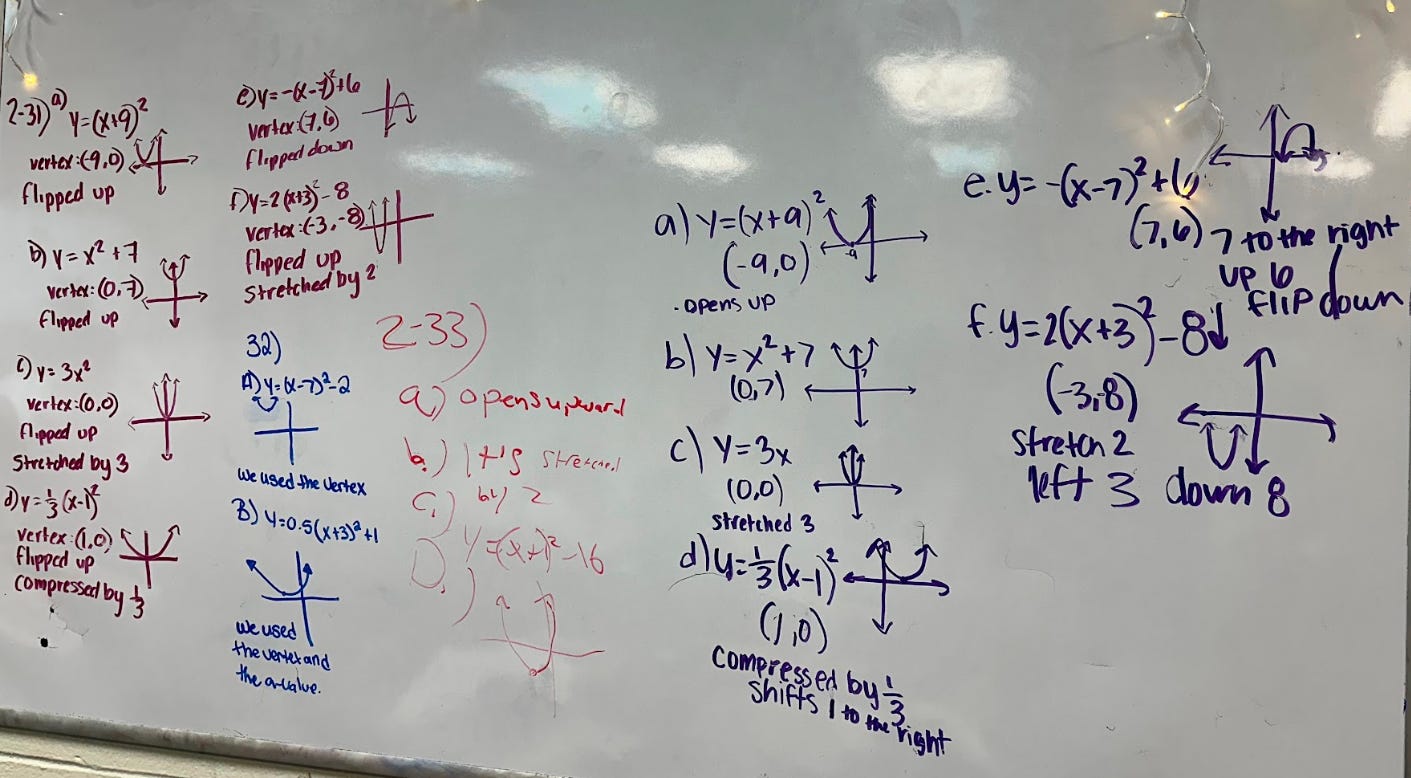 2-31) a) y=(x+9)²
vertex:(-9,0)
flipped up
b) y=x²+7
vertex:(0,7)
flipped up
c) y=3x²
vertex:(0,0)
flipped up
Stretched by 3
d) y=1/3(x-1)²
vertex:(1,0)
flipped up
compressed by 1/3
e) y=-(x-7)²+6
vertex:(7,6)
flipped down
f) y=2(x+3)²-8
vertex:(-3,-8)
flipped up
stretched by 2
32)
A) y=(x-7)²-2
we used the vertex
B) y=0.5(x+3)²+1
we used
the vertex and
the a-value.
2-33)
a) opens upward
b.) it's
c.) by 2
D.) -16
a) y=(x+9)²
-9
(-9,0)
.opens up
b) y=x²+7
7
(0,7)
c) y=3x
(0,0)
stretched 3
d) y=1/3(x-1)²
(1,0)
compressed by 1/3
shifts 1 to the right
e. y=-(x-7)²+6
(7,6) 7 to the right
up 6
flip down
f. y=2(x+3)²-8↓
(-3,-8)
stretch 2
left 3 down 8